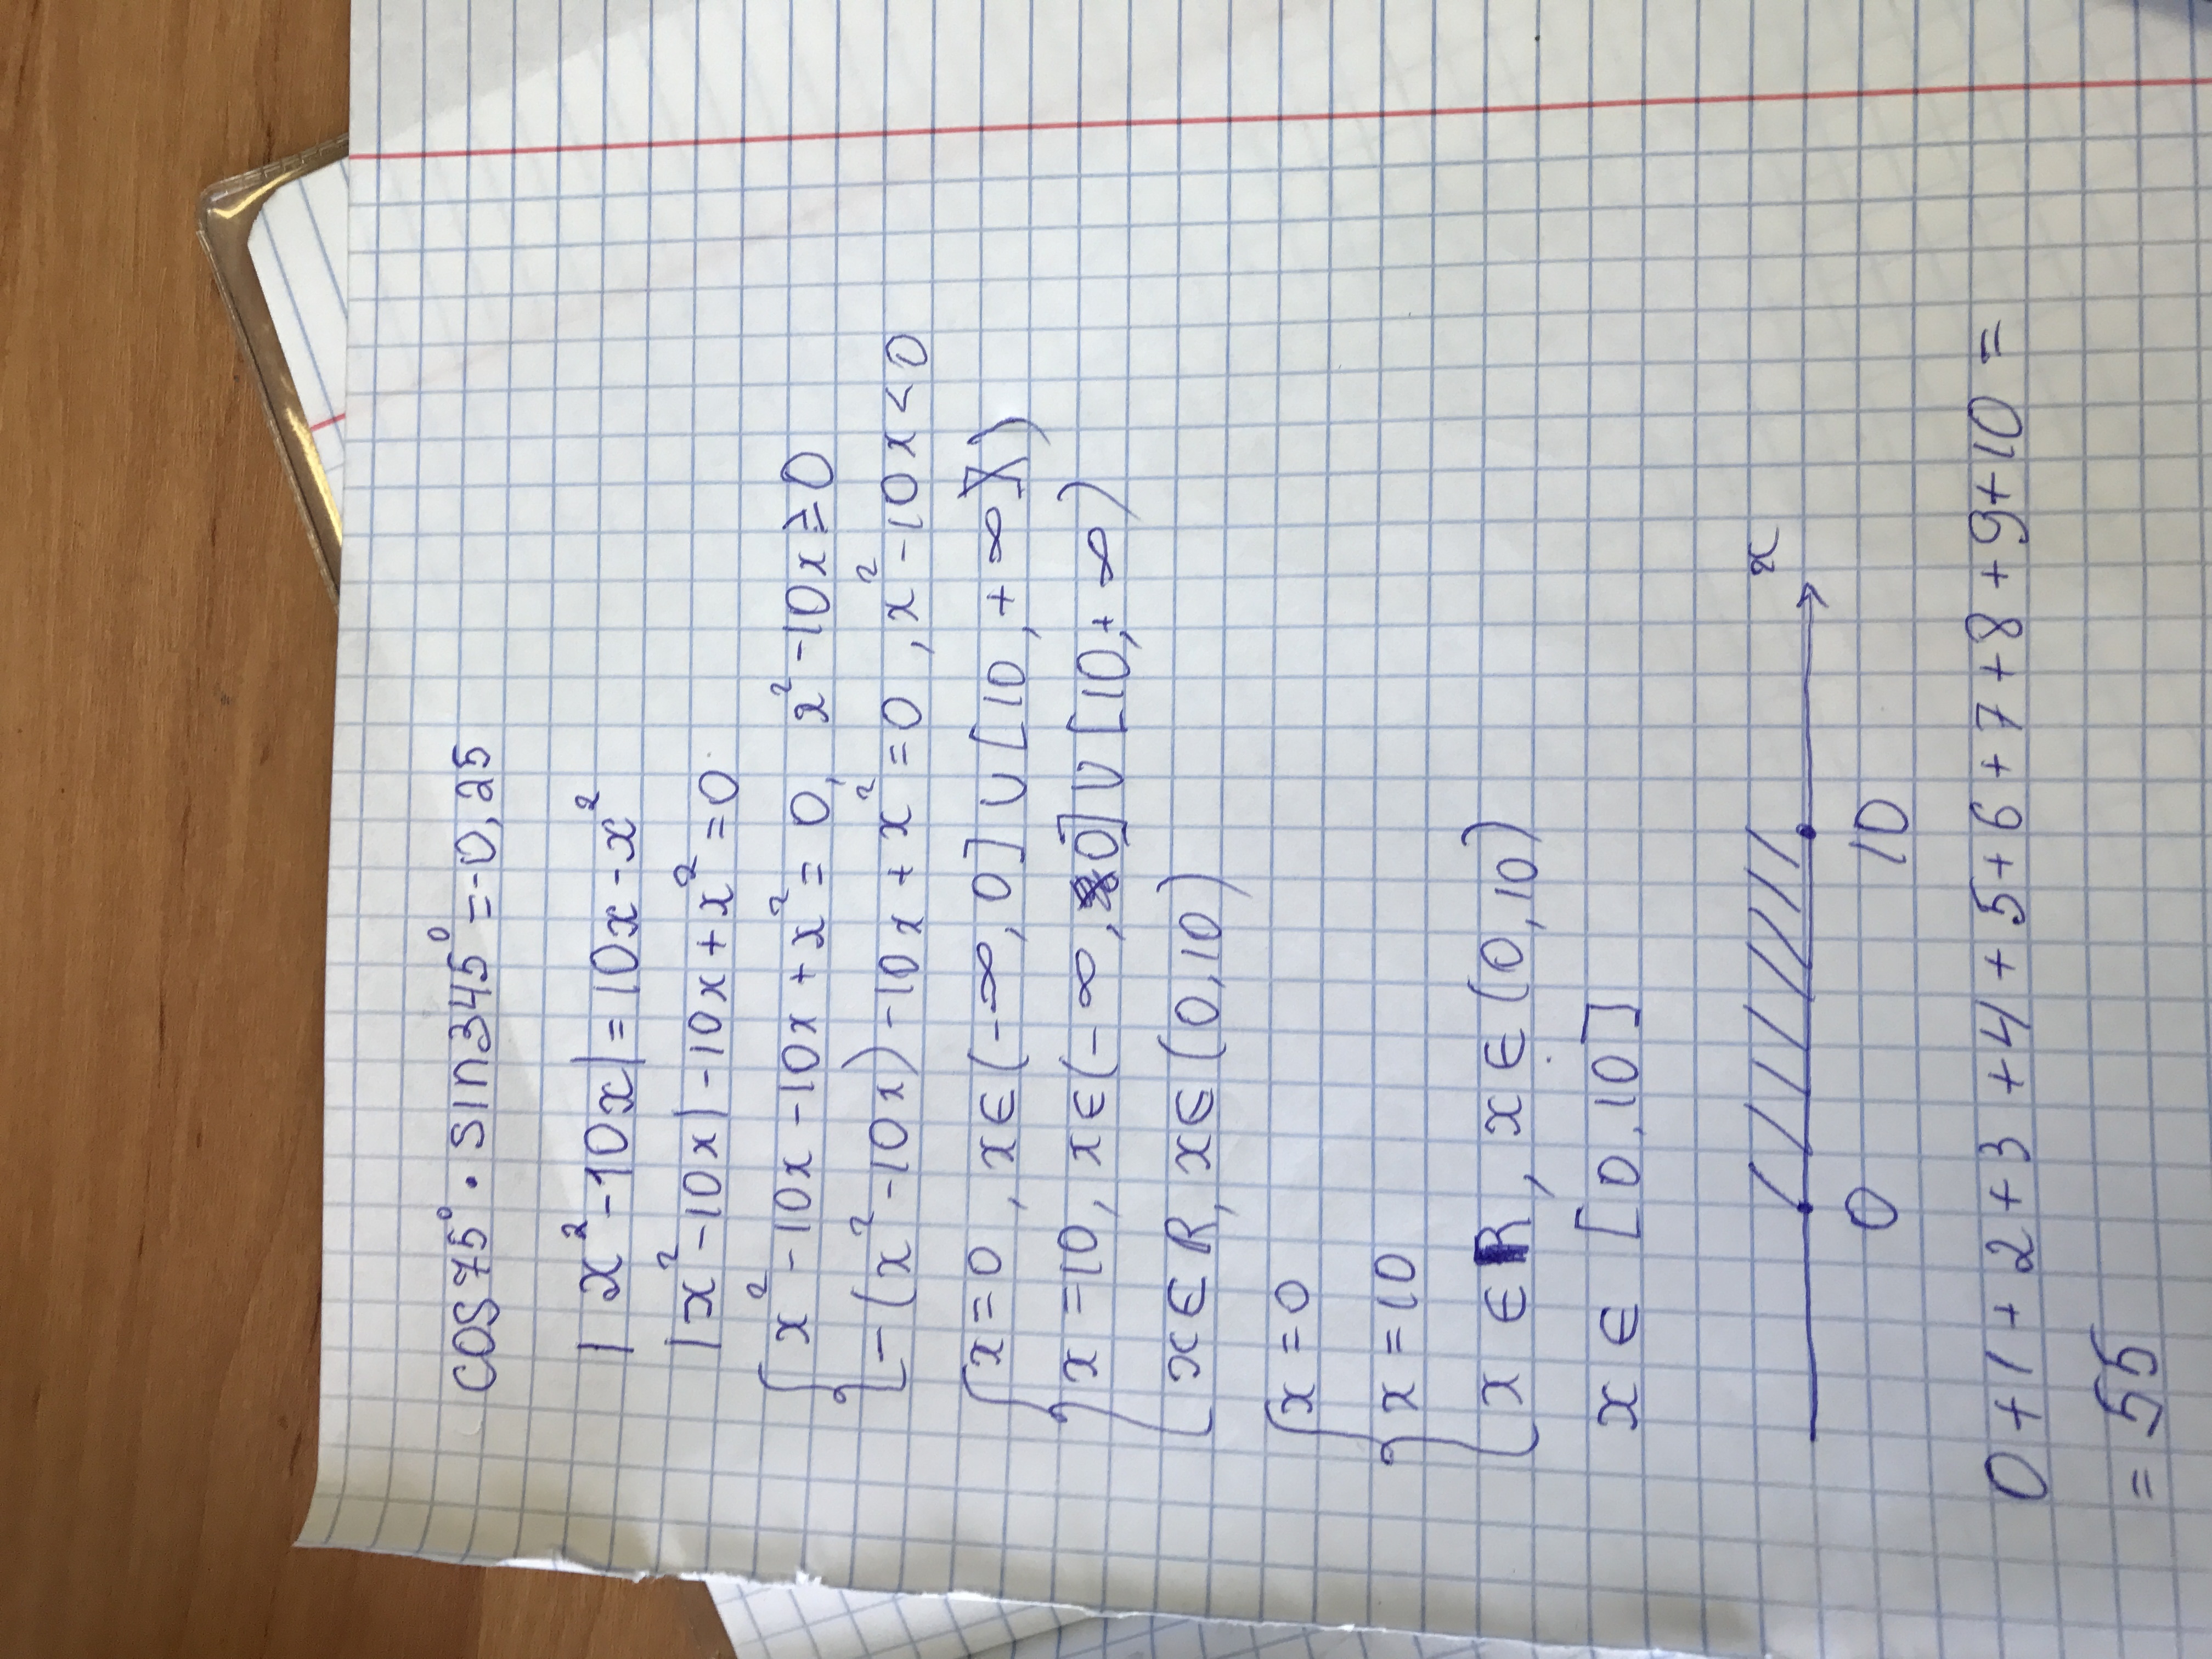 cos75°·sin345°=-0,25
|x²-10x|=10x-x²
|x²-10x|-10x+x²=0
x²-10x-10x+x²=0, x²-10x≥0
-(x²-10x)-10x+x²=0, x²-10x<0
x=0, x∈(-∞,0]∪[10,+∞)
x=10, x∈(-∞,0]∪[10,+∞)
x∈R, x∈(0,10)
x=0
x=10
x∈R, x∈(0,10)
x∈[0,10]
x
0 10
0+1+2+3+4+5+6+7+8+9+10=
=55